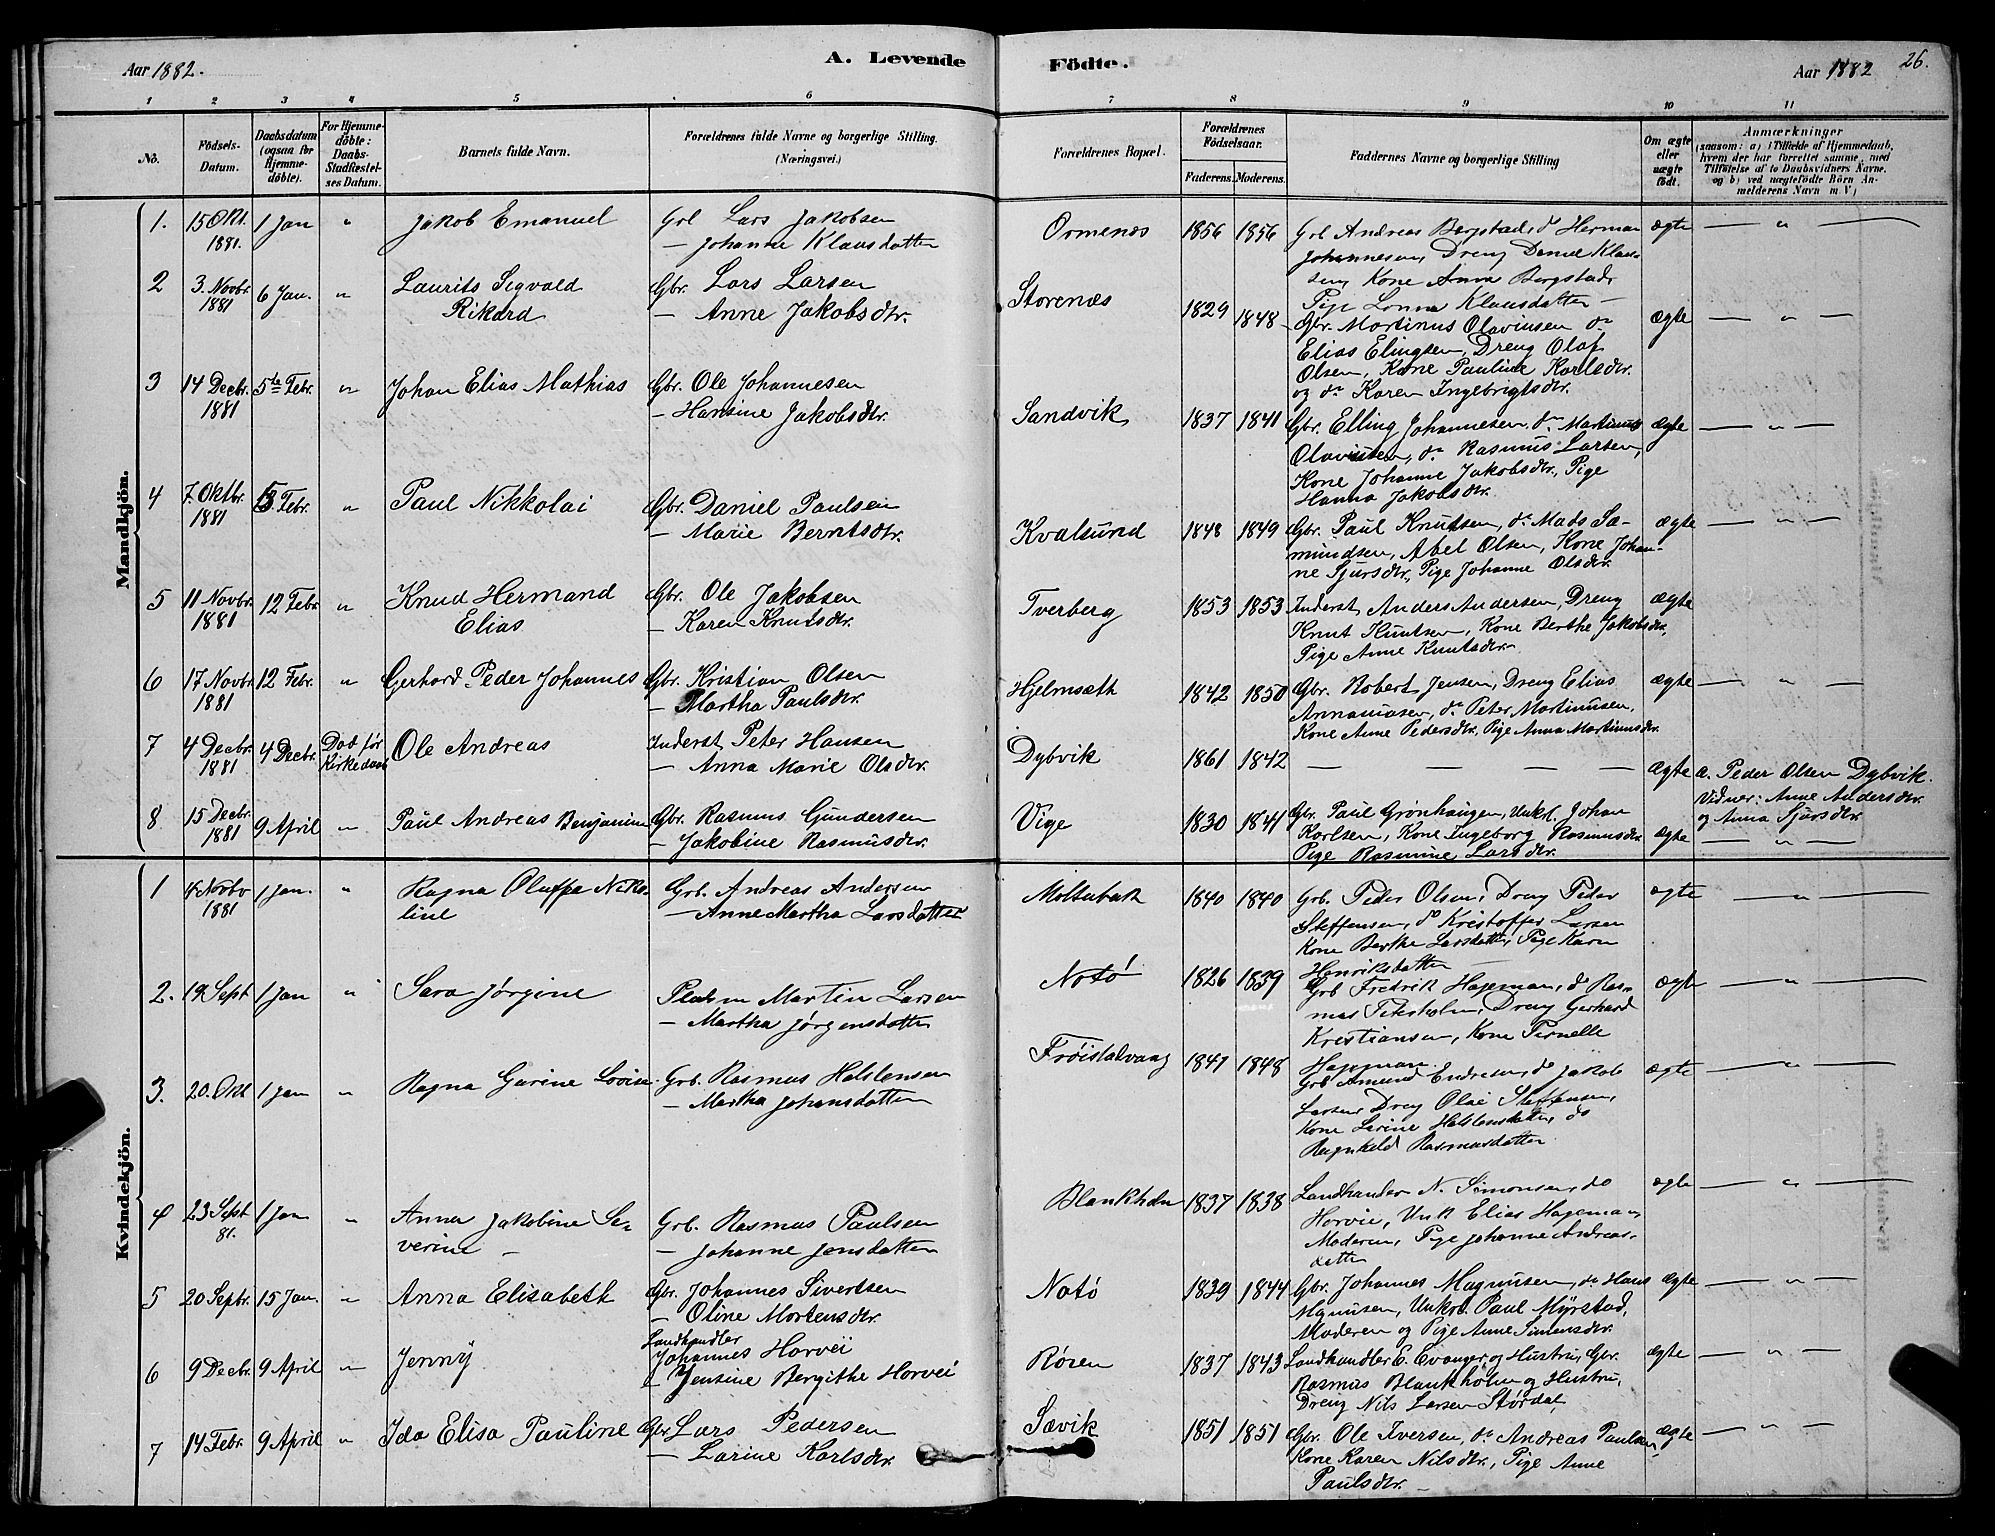 Aar 1882.
A. Levende Födte.
Aar 1882
26.
1 2 3 4 5 6 7 8 9 10 11
No.
Födsels-Datum.
Daabsdatum (ogsaa for Hjemme-döbte).
For Hjemme-döbte: Daabs-Stadfæstel-ses Datum.
Barnets fulde Navn.
Forældrenes fulde Navne og borgerlige Stilling. (Næringsvei.)
Forældrenes Bopæl.
Forældrenes Födselsaar.
Faderens. Moderens.
Faddernes Navne og borgerlige Stilling
Om ægte eller uægte födt.
Anmærkninger
(saasom: a) i Tilfælde af Hjemmedaab, hvem der har forrettet samme, med Tilföielse af to Daabsvidners Navne. og b) ved uægtefödte Börn An-melderens Navn m. V.)
Mandkjön.
1. 15 Okt. 1881. 1 Jan " Jakob Emanuel
Grb Lars Jakobsen
— Johanne Klausdatter
Ormenes 1856 1856
Grb Andreas Bergstad, do Herman
Johannesen, Dreng Daniel Klau-
sen, Kone Anna Bergstad,
Pige Lonna Klausdatter —
ægte — " —
2 3. Novbr. 1881 6 Jan. " Laurits Segvald
Rikard
Gbr. Lars Larsen
— Anne Jakobsdtr.
Storenæs 1829 1848
Gbr. Martinus Olavinsen do
Elias Elingsen, Dreng Olaf
Olsen, Kone Pauline Karlsdtr.
og do Karen Ingebrigtsdtr.
ægte — " —
3 14 Decbr. 1881 5te Febr. " Johan Elias Mathias
Gbr. Ole Johannesen
— Hansine Jakobsdtr.
Sandvik 1837 1841
Gbr. Elling Johannesen, do Martinus
Olavinsen, do Rasmus Larsen,
Kone Johanne Jakobsdtr., Pige
Hanna Jakobsdtr.
ægte — " —
4 7. Oktbr. 1881 5. Febr. " Paul Nikkolai
Gbr. Daniel Paulsen
— Marie Berntsdtr.
Kvalsund 1848 1849
Gbr. Paul Knutsen, do Mads Sæ-
mundsen, Abel Olsen, Kone Johan-
ne Sjursdtr., Pige Johanne Olsdtr.
ægte — " —
5 11 Novbr. 1881 12 Febr. " Knud Hermand
Elias
Gbr. Ole Jakobsen
— Karen Knutsdtr.
Tverberg 1853 1853
Inderst Anders Andersen, Dreng
Knut Knutsen, Kone Berthe Jakobsdtr,
Pige Anne Knutsdtr.
ægte — " —
6 17 Novbr. 1881 12 Febr. " Gerhard Peder Johannes
Gbr. Kristian Olsen
— Martha Paulsdtr.
Hjelmsæth 1842 1850
Gbr. Robert Jensen, Dreng Elias
Annaniasen, do Peter Martinusen,
Kone Anne Pedersdtr, Pige Anna Martinusdtr.
ægte — " —
7 4 Decbr. 1881 4 Decbr. Död för Kirkedaab Ole Andreas
Inderst Peter Hansen
— Anna Marie Olsdtr.
Dybvik 1861 1842
— — — —
ægte a. Peder Olsen Dybvik.
Vidner: Anne Andersdtr.
og Anna Sjursdtr.
8 15 Decbr. 1881 9 April " Paul Andreas Benjamin
Gbr. Rasmus Gundersen
— Jakobine Rasmusdtr.
Vige 1830 1841
Gbr. Paul Grønhaugen, Unkrl. Johan
Karlsen, Kone Ingeborg Rasmusdtr.
Pige Rasmine Larsdtr.
ægte — " —
Kvindekjön.
1 4 Novbr 1881 1 Jan. " Ragna Oluffa Niko-
line
Grb. Andreas Andersen
— Anne Martha Larsdatter
Moltubak 1840 1840
Grb. Peder Olsen, Dreng Peder
Steffensen, do Kristoffer Larsen
Kone Berthe Larsdatter, Pige Karen
Henriksdatter —
ægte — " —
2. 19 Sept 1 Jan " Sara Jørgine
Pladsm Martin Larsen
— Martha Jørgensdatter
Notö 1826 1839
Grb Fredrik Hageman, do Ras-
mus Petersholm, Dreng Gerhard
Kristiansen, Kone Pernelle
Hageman
ægte — " —
3. 20. Okt 1 Jan " Ragna Gurine Lovise
Grb. Rasmus Halstensen
— Martha Johansdatter
Fröistalvaag 1847 1848
Grb Amund Endresen, do Jakob
Larsen, Dreng Olai Steffensen,
Kone Larine Halstensdatter, do
Ragnhild Rasmusdatter
ægte — " —
4 23 Sept 81. 1 Jan " Anna Jakobine Se-
verine —
Grb. Rasmus Paulsen
— Johanne Jensdatter
Blankholm 1837 1838
Landhandler N. Simonsen, do
Horvie, Unk Elias Hageman,
Moderen, Pige Johanne Andreas-
datter
ægte — " —
5 20 Septbr. 15 Jan. " Anna Elisabeth
Gbr. Johannes Sivertsen
— Oline Mortensdtr.
Notö 1839 1844
Gbr. Johannes Magnusen, do Hans
Magnusen, Unkrl. Paul Myrstad,
Moderen og Pige Anne Simensdtr.
ægte — " —
6 9 Decbr. 9 April " Jenny
Landhandler
Johannes Horvei
— Jensine Bergithe Horvei
Røren 1837 1843
Landhandler E. Evanger og Hustru, Gbr.
Rasmus Blankholm og Hustru,
Dreng Nils Larsen Størdal,
ægte — " —
7 14 Febr. 9 April " Ida Elisa Pauline
Gbr Lars Pedersen
— Larine Karlsdtr.
Sævik 1851 1851
Gbr. Ole Iversen, do Andreas Paulsen,
Kone Karen Nilsdtr., Pige Anne
Paulsdtr. —
ægte — " —